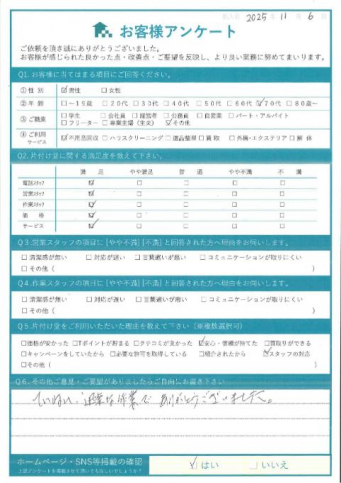 記入日 2025年 11月 6日
お客様アンケート
ご依頼を頂き誠にありがとうございました。
お客様が感じられた良かった点・改善点・ご要望を反映し、より良い業務に努めてまいります。
Q1.お客様に当てはまる項目にご回答ください。
①性 別 ☑男性 □女性
②年 齢 □~19歳 □20代 □30代 □40代 □50代 □60代 ☑70代 □80歳~
③ご職業 □学生 □会社員 □経営者 □公務員 □自営業 □パート・アルバイト
□フリーター □専業主婦(主夫) ☑その他
④ご利用サービス ☑不用品回収 □ハウスクリーニング □遺品整理 □買取 □外構・エクステリア □解体
Q2.片付け堂に関する満足度を教えて下さい。
満足 やや満足 普通 やや不満 不満
電話スタッフ ☑ □ □ □ □
営業スタッフ ☑ □ □ □ □
作業スタッフ ☑ □ □ □ □
価格 ☑ □ □ □ □
サービス ☑ □ □ □ □
Q3.営業スタッフの項目に[やや不満][不満]と回答された方へ理由をお伺いします。
□清潔感が無い □対応が遅い □言葉遣いが悪い □コミュニケーションが取りにくい
□その他( )
Q4.作業スタッフの項目に[やや不満][不満]と回答された方へ理由をお伺いします。
□清潔感が無い □対応が遅い □言葉遣いが悪い □コミュニケーションが取りにくい
□その他( )
Q5.片付け堂をご利用いただいた理由を教えて下さい(※複数選択可)
□価格が安かった □Tポイントが貯まる □クチコミが良かった ☑安心・信頼が持てた □買取りができる
□キャンペーンをしていたから □必要な許可を取得している □紹介されたから ☑スタッフの対応
□その他( )
Q6.その他ご意見・ご要望がありましたらご自由にお書き下さい
ていねい、迅速な作業で ありがとうございました。
ホームページ・SNS等掲載の確認
☑はい □いいえ